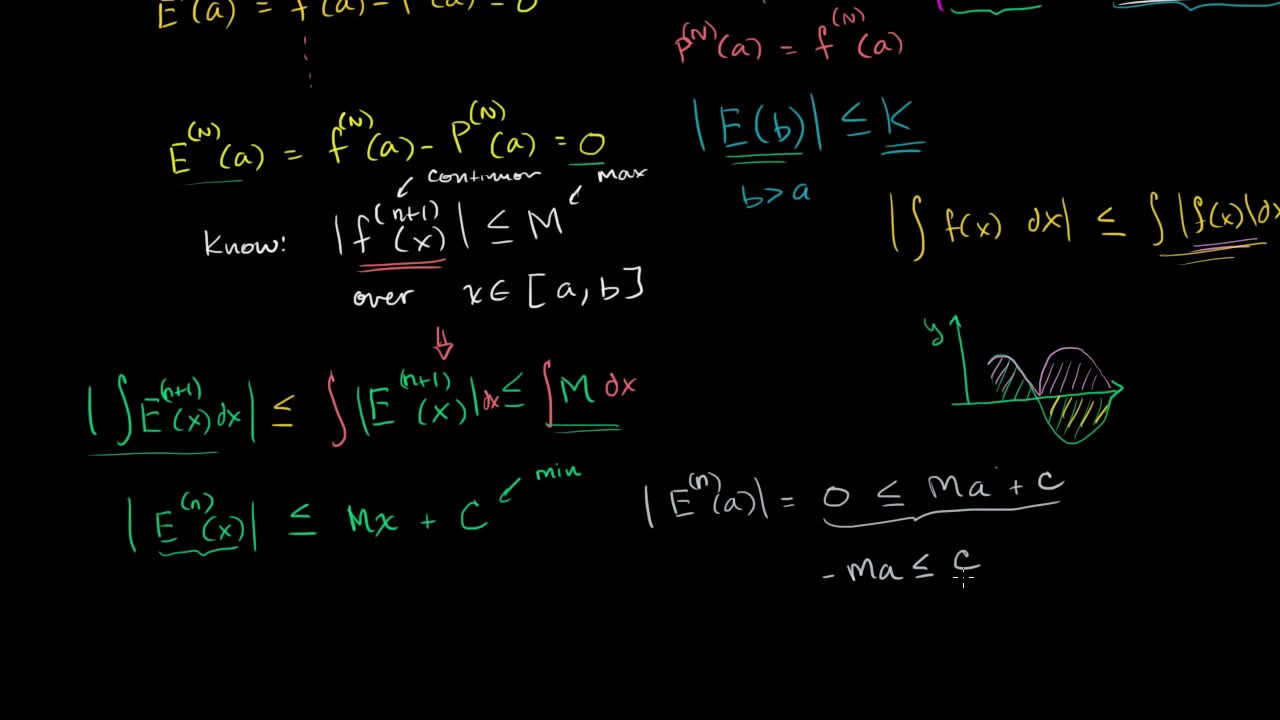 E'(a) = f'(a) - P'(a) = 0
P^(N)(a) = f^(N)(a)
E^(N)(a) = f^(N)(a) - P^(N)(a) = 0
|E(b)| ≤ K
b > a
continuous max
Know: |f^(n+1)(x)| ≤ M
over x ∈ [a, b]
|∫ f(x) dx| ≤ ∫ |f(x)| dx
y
|∫ E^(n+1)(x) dx| ≤ ∫ |E^(n+1)(x)| dx ≤ ∫ M dx
min
|E^(n)(x)| ≤ Mx + C
|E^(n)(a)| = 0 ≤ Ma + C
-Ma ≤ C